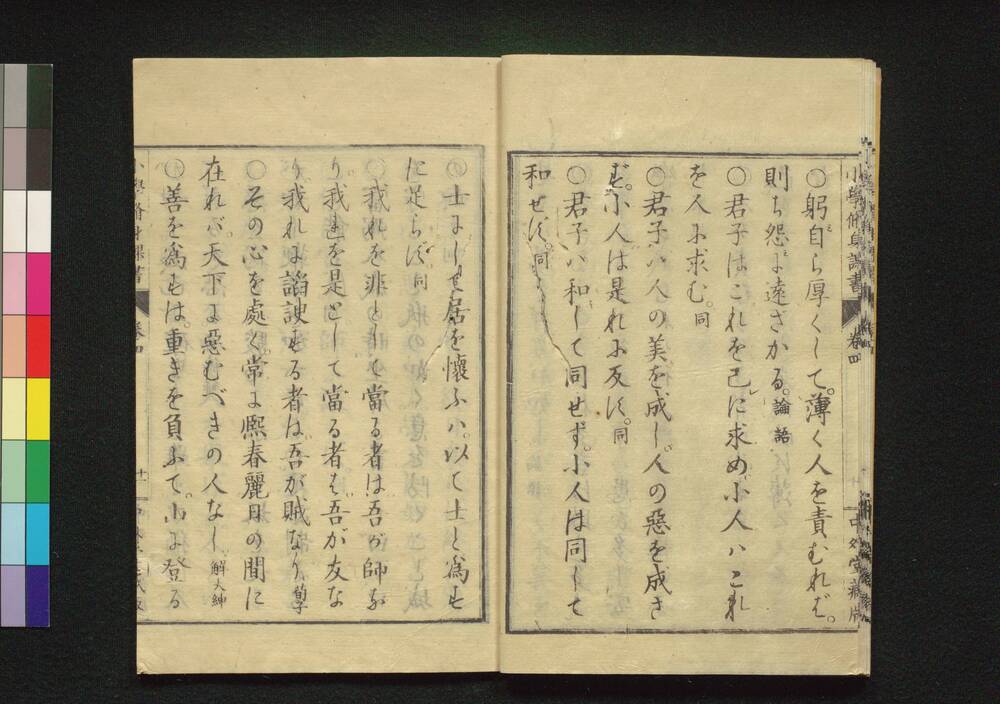 小學修身課書 卷四 十 中外堂藏版
○躬自ら厚くして。薄く人を責むれば。
則ち怨に遠ざかる。論語
○君子はこれを己に求め。小人ハこれ
を人に求む。同
○君子ハ人の美を成し。人の惡を成さ
ず。小人は是れに反す。同
○君子ハ和して同せず。小人は同して
和せず。同
○士にして居を懷ふハ。以て士と爲す
に足らず。同
○我れを非として當る者は。吾が師な
り。我れを是として當る者は。吾が友な
り。我れに諂諛する者は。吾が賊なり。荀子
○その心を處する。常に熙春麗日の間に
在れバ。天下に惡むべきの人なし。解大紳
○善を爲すは。重きを負ふて。山に登る
小學修身課書 卷四 十一